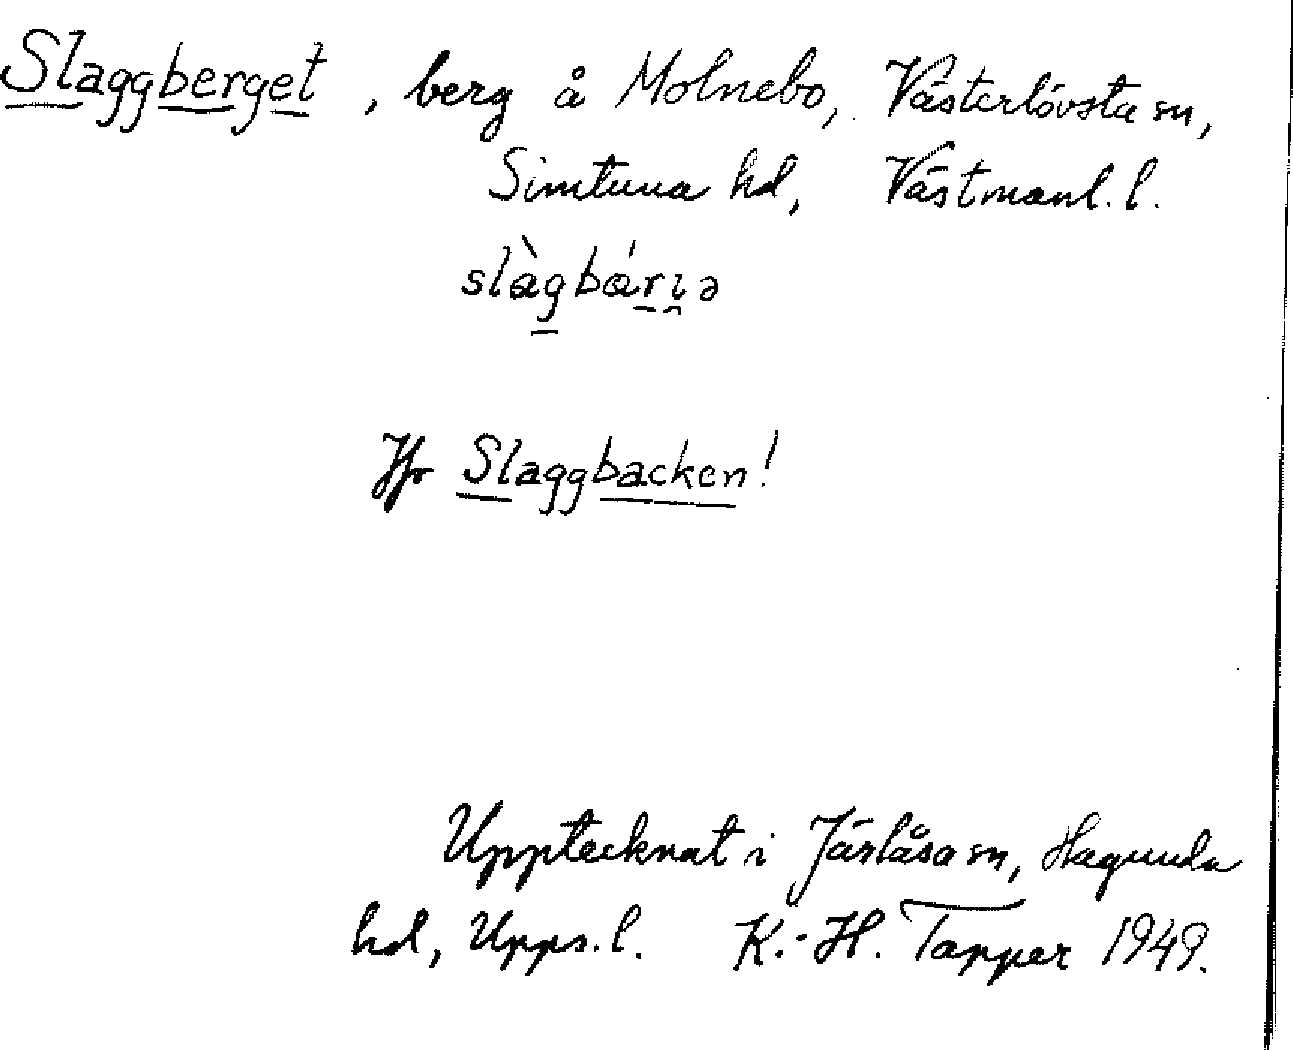 Slaggberget, berg å Molnebo, Västerlövsta sn,
Simtuna hd, Västmanl. l.
Jfr Slaggbacken!
Upptecknat i Järlåsa sn, Hagunda
hd, Upps. l. K.-H. Tapper 1949.